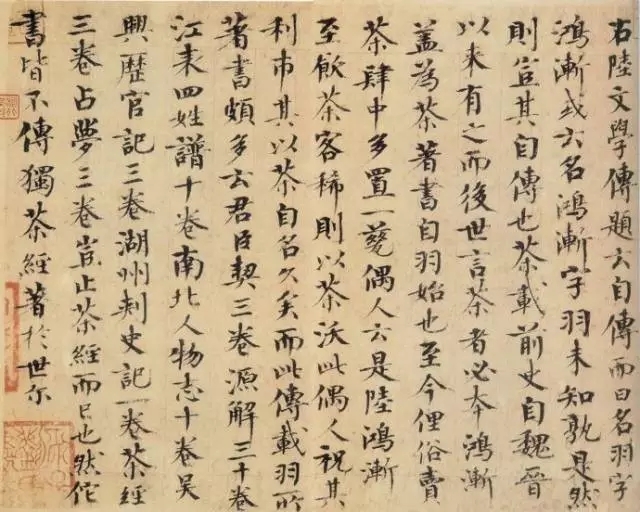 右陸文學傳題云自傳而曰名羽字
鴻漸或云名鴻漸字羽未知孰是然
則豈其自傳也茶載前史自魏晉
以来有之而後世言茶者必本鴻漸
盖為茶著書自羽始也至今俚俗賣
茶肆中多置一甆偶人云是陸鴻漸
至飲茶客稀則以茶沃此偶人祝其
利市其以茶自名久矣而此傳載羽所
著書頗多云君臣契三卷源解三十卷
江表四姓譜十卷南北人物志十卷吳
興歷官記三卷湖州刺史記一卷茶經
三卷占夢三卷豈止茶經而已也然佗
書皆不傳獨茶經著於世尔